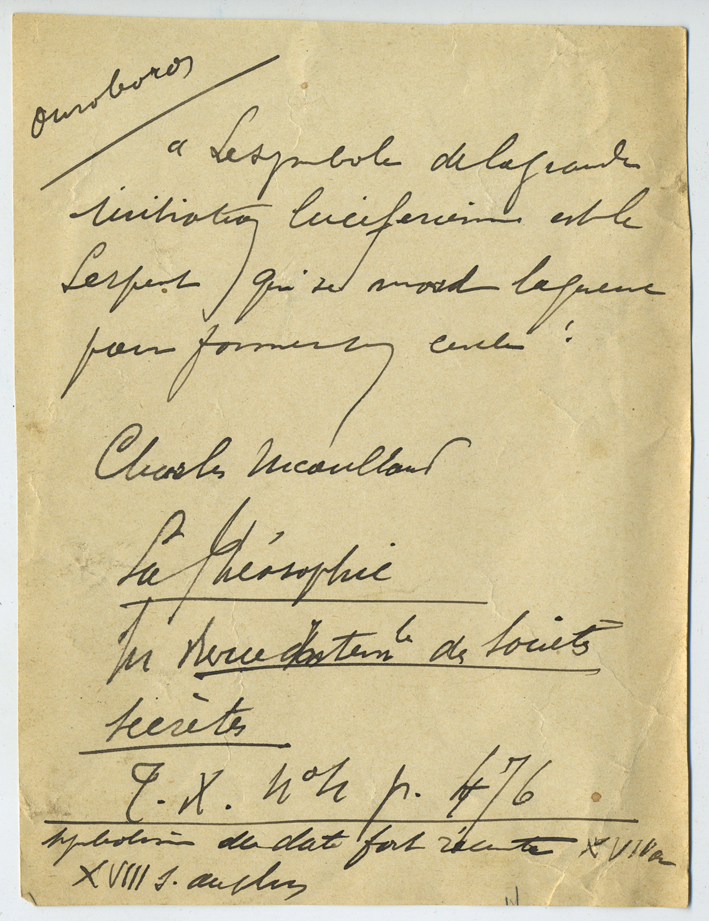 Ouroboros
" Le symbole de la grande
initiation luciferienne est le
Serpent qui se mord la queue
pour former un cercle "
Charles Nicoullaud
La Théosophie
In Revue Intern le des Sociétés
Secrètes
T. X. n° p. 476
symbolisme de date fort récente XVII ou
XVIII s. au plus